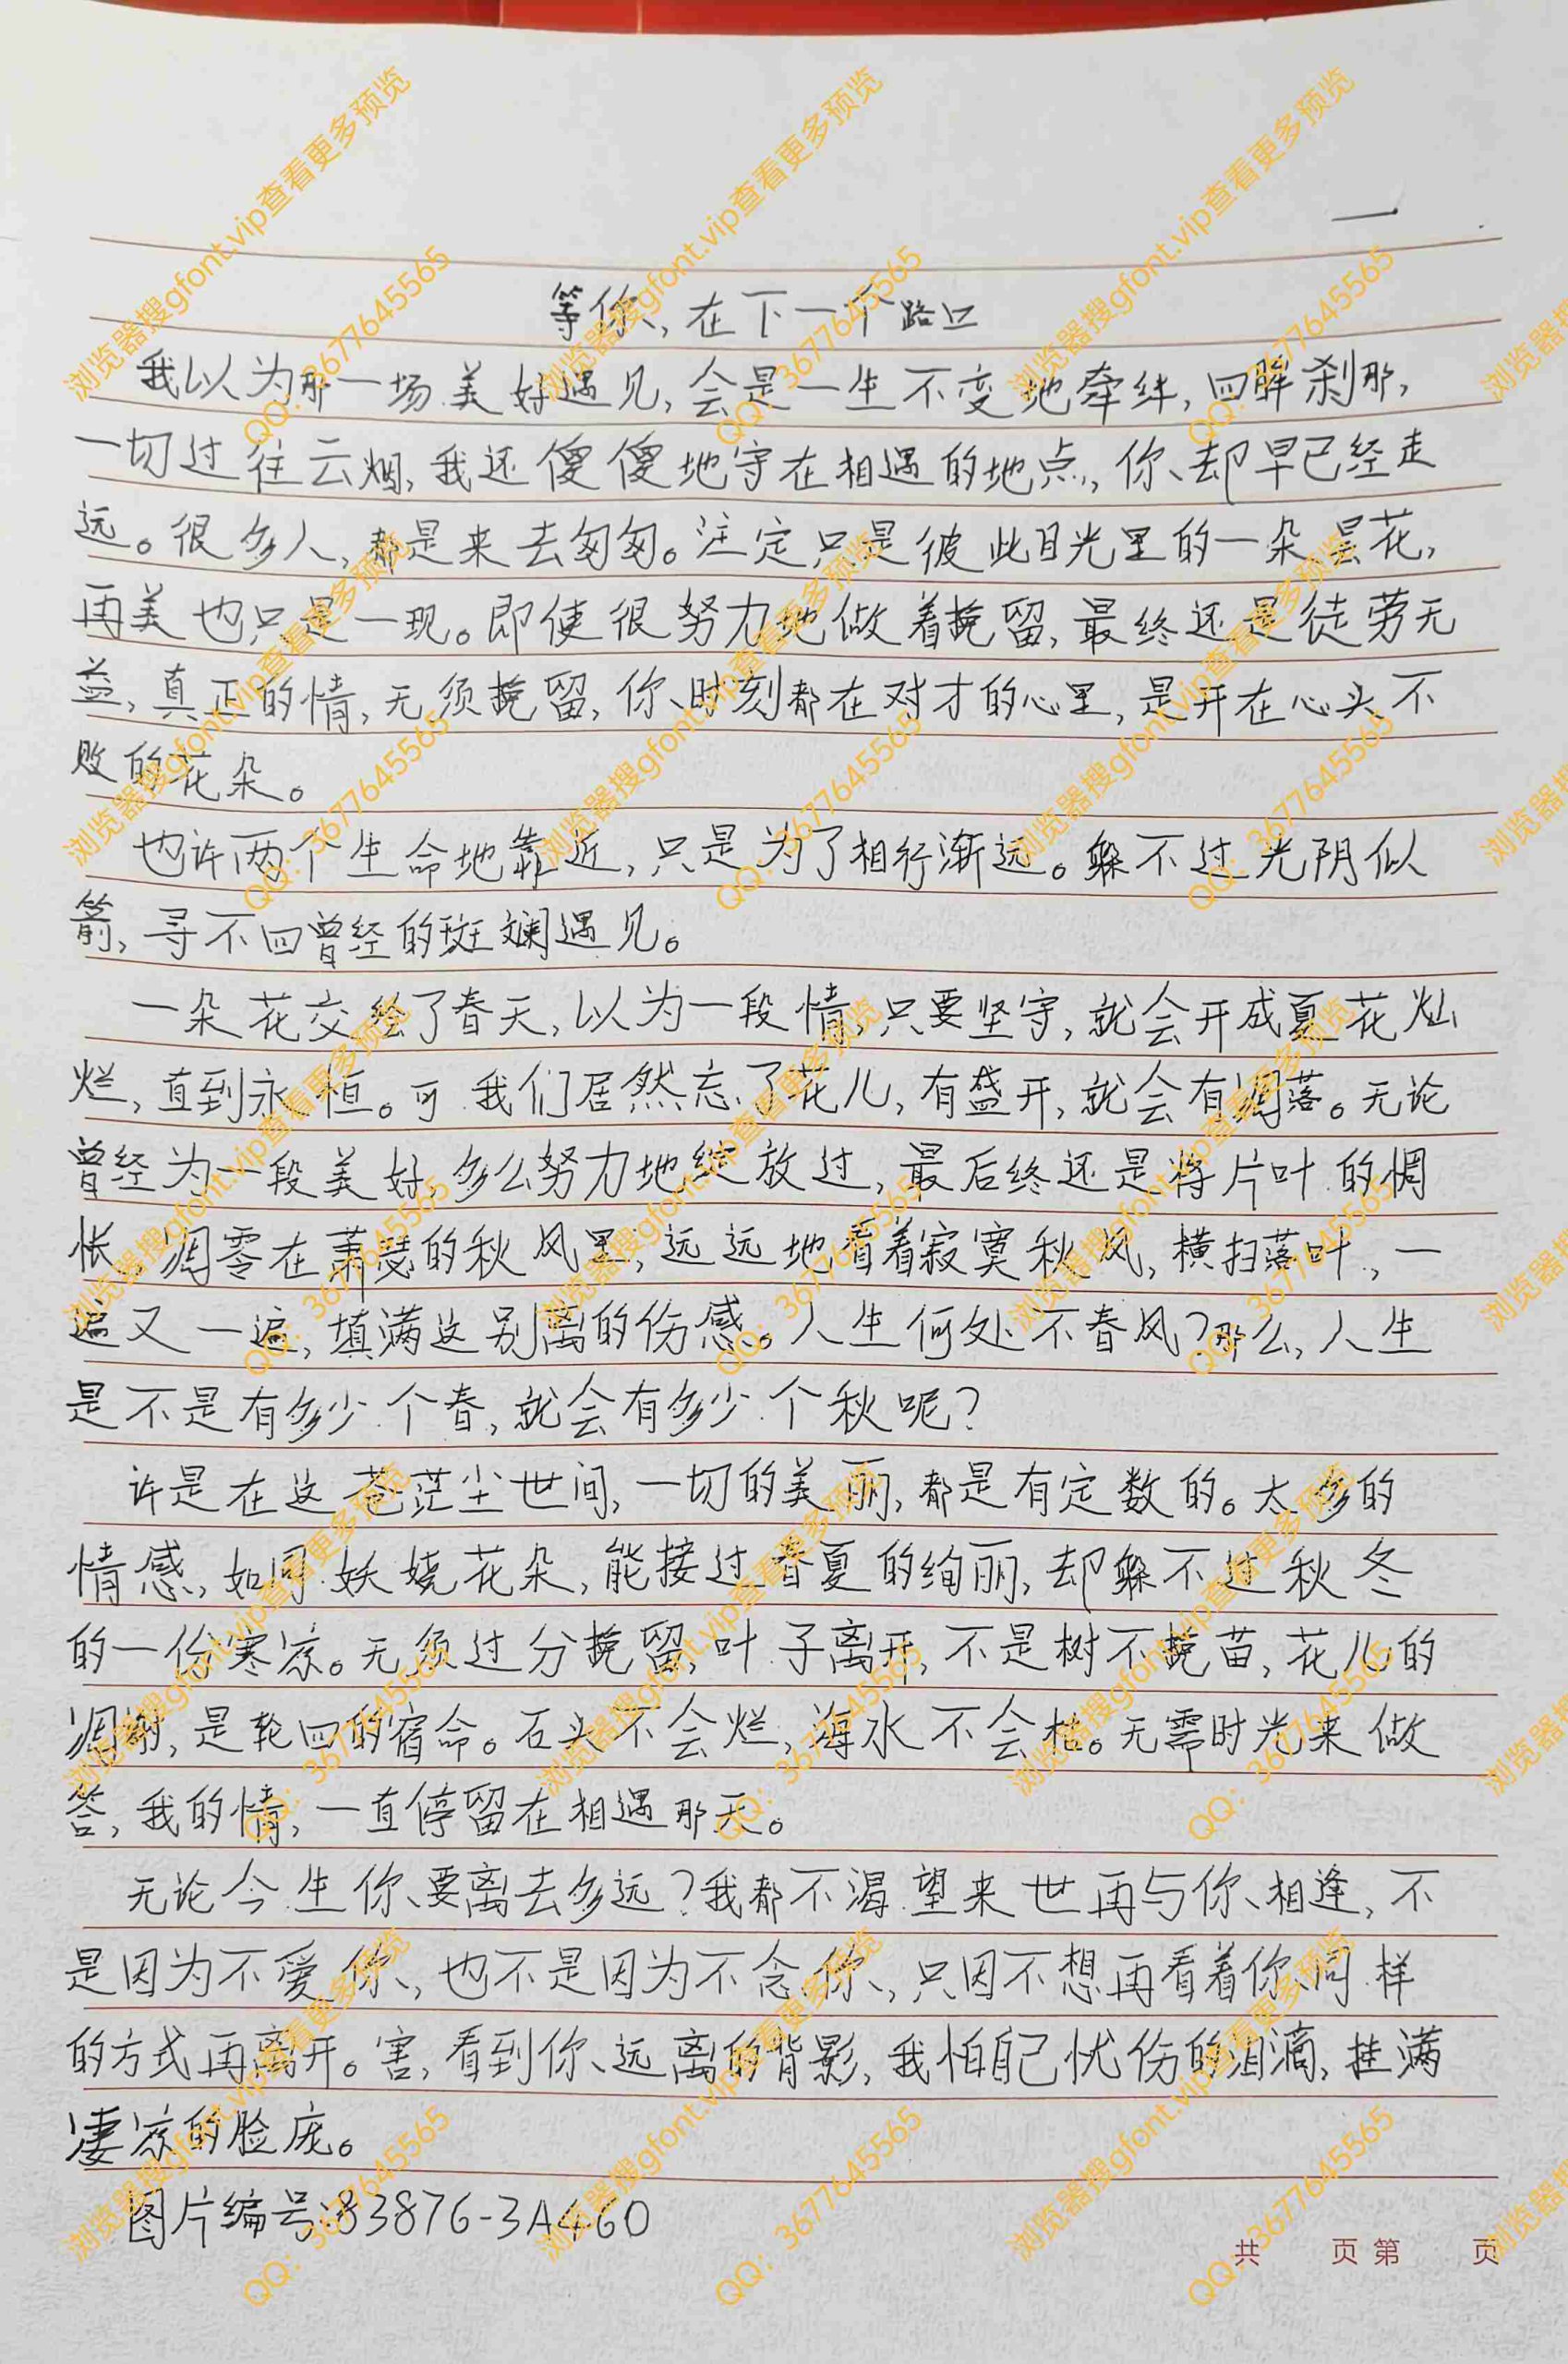 一
等你,在下一个路口
我以为那一场美好遇见,会是一生不变地牵绊,回眸刹那,
一切过往云烟,我还傻傻地守在相遇的地点,你却早已经走
远。很多人,都是来去匆匆。注定只是彼此目光里的一朵昙花,
再美也只是一现。即使很努力地做着挽留,最终还是徒劳无
益,真正的情,无须挽留,你时刻都在对才的心里,是开在心头不
败的花朵。
也许两个生命地靠近,只是为了相行渐远。躲不过光阴似
箭,寻不回曾经的斑斓遇见。
一朵花交给了春天,以为一段情,只要坚守,就会开成夏花灿
烂,直到永恒。可我们居然忘了花儿,有盛开,就会有凋落。无论
曾经为一段美好,多么努力地绽放过,最后终还是将片叶的惆
怅,凋零在萧瑟的秋风里,远远地看着寂寞秋风,横扫落叶,一
遍又一遍,填满这别离的伤感。人生何处不春风?那么,人生
是不是有多少个春,就会有多少个秋呢?
许是在这苍茫尘世间,一切的美丽,都是有定数的。太多的
情感,如同妖娆花朵,能接过春夏的绚丽,却躲不过秋冬
的一份寒凉。无须过分挽留,叶子离开,不是树不挽苗,花儿的
凋谢,是轮回的宿命。石头不会烂,海水不会枯。无需时光来做
答,我的情,一直停留在相遇那天。
无论今生你要离去多远?我都不渴望来世再与你相逢,不
是因为不爱你,也不是因为不念你,只因不想再看着你同样
的方式再离开。害,看到你远离的背影,我怕自己忧伤的泪滴,挂满
凄凉的脸庞。
图片编号:83876-3A460
共 页 第 页
浏览器搜gfont.vip查看更多预览
QQ：3677645565